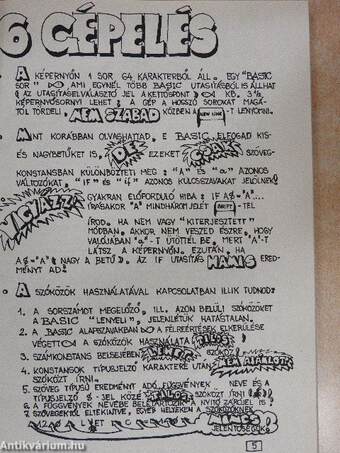 6 GÉPELÉS
A KÉPERNYŐN 1 SOR 64 KARAKTERBŐL ÁLL. EGY "BASIC
SOR" AMI EGYNÉL TÖBB BASIC UTASÍTÁSBÓL IS ÁLLHAT
(AZ UTASÍTÁSELVÁLASZTÓ JEL A KETTŐSPONT) KB. 3½
KÉPERNYŐSORNYI LEHET; A GÉP A HOSSZÚ SOROKAT MAGÁ-
TÓL TÖRDELI. NEM SZABAD KÖZBEN A NEW LINE -T LENYOMNI.
MINT KORÁBBAN OLVASHATTAD, E BASIC ELFOGAD KIS
ÉS NAGYBETŰKET IS, DE EZEKET CSAK SZÖVEG-
KONSTANSBAN KÜLÖNBÖZTETI MEG: "A" ÉS "a" AZONOS
VÁLTOZÓKAT, "IF" ÉS "if" AZONOS KULCSSZAVAKAT JELÖLNEK!
VIGYÁZZ! GYAKRAN ELŐFORDULÓ HIBA: IF A$="A"...
ÍRÁSAKOR "A" MINDHÁROM JELÉT SHIFT -TEL
ÍROD. HA NEM VAGY "KITERJESZTETT"
MÓDBAN, AKKOR NEM VESZED ÉSZRE, HOGY
VALÓJÁBAN "a"-T ÜTÖTTÉL BE, MERT "A"-T
LÁTSZ A KÉPERNYŐN. EZUTÁN, HA
A$="A" (NAGY A BETŰ), AZ IF UTASÍTÁS HAMIS ERED-
MÉNYT AD!
A SZÓKÖZÖK HASZNÁLATÁVAL KAPCSOLATBAN ILLIK TUDNOD:
1. A SORSZÁMOT MEGELŐZŐ, ILL. AZON BELÜLI SZÓKÖZÖKET
A BASIC "LENYELI", JELENLÉTÜK HATÁSTALAN.
2. A BASIC ALAPSZAVAKBAN A FÉLREÉRTÉSEK ELKERÜLÉSE
VÉGETT A SZÓKÖZÖK HASZNÁLATA TILOS!
3. SZÁMKONSTANS BELSEJÉBEN LEHET SZÓKÖZ!
4. KONSTANSOK TÍPUSJELZŐ KARAKTERE UTÁN NEM AJÁNLATOS
SZÓKÖZT ÍRNI.
5. SZÖVEG TÍPUSÚ EREDMÉNYT ADÓ FÜGGVÉNYEK NEVE ÉS A
TÍPUSJELZŐ $-JEL KÖZÉ TILOS SZÓKÖZT ÍRNI!
6. A FÜGGVÉNYEK NEVÉBE BELETARTOZIK A NYITÓ ZÁRÓJEL IS!
7. SZÖVEGEKTŐL ELTEKINTVE, EGYÉB HELYEKEN A SZÓKÖZÖKNEK
NINCS JELENTŐSÉGÜK!
5
antikvárium.hu